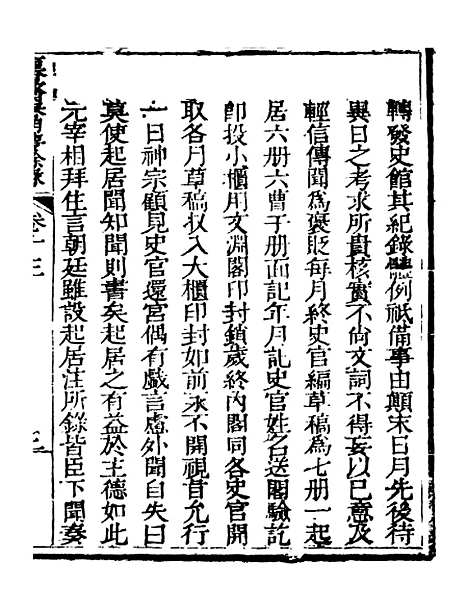 轉發史館其紀錄體例祇備事由顛末日月先後待
異日之考求所貴核實不尙文詞不得妄以已意及
輕信傳聞為褒貶每月終史官編草稿為七册一起
居六册六曹于册面記年月訖史官姓名送閣驗訖
卽投小櫃用文淵閣印封鎖歲終內閣同各史官開
取各月草稿収入大櫃印封如前永不開視旨允行
一日神宗顧見史官還宮偶有戲言慮外聞自失曰
莫使起居聞知聞則書矣起居之有益於主德如此
元宰相拜住言朝廷雖設起居注所錄皆臣下聞奏
卷十三